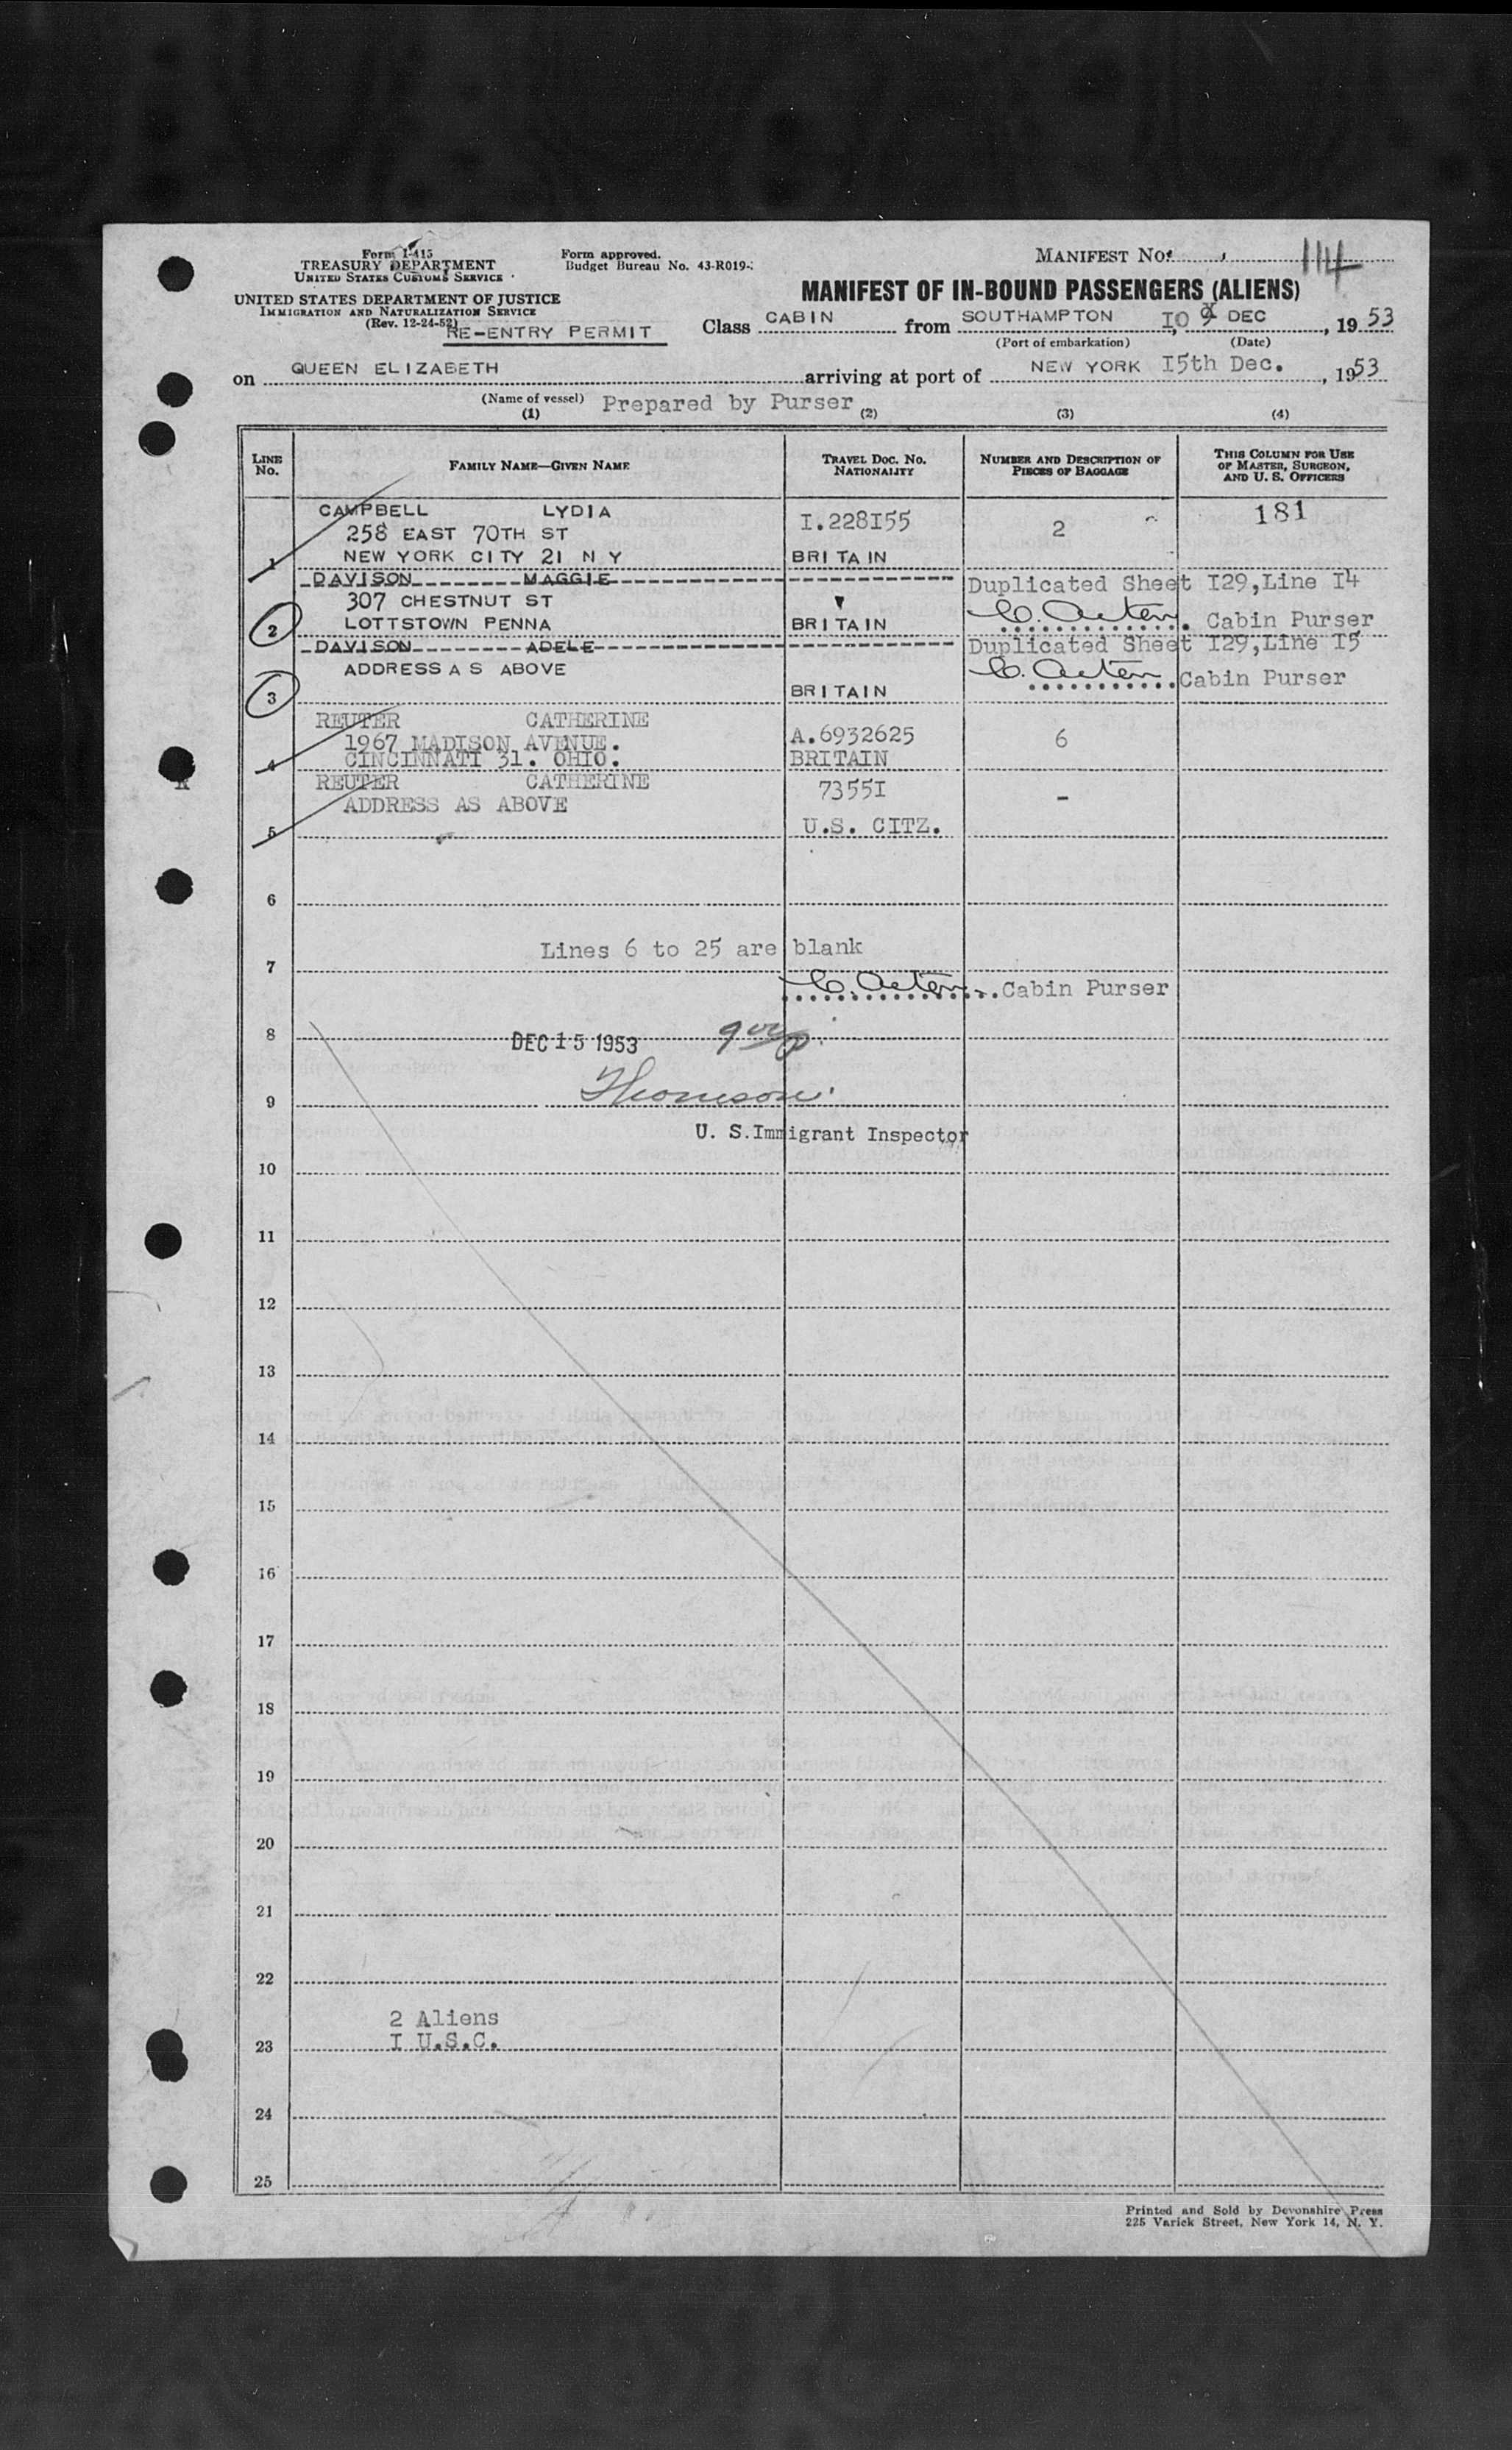 Form I-415
TREASURY DEPARTMENT
UNITED STATES CUSTOMS SERVICE
UNITED STATES DEPARTMENT OF JUSTICE
IMMIGRATION AND NATURALIZATION SERVICE
(Rev. 12-24-52)
RE-ENTRY PERMIT
Form approved.
Budget Bureau No. 43-R019-
MANIFEST NO. 114
MANIFEST OF IN-BOUND PASSENGERS (ALIENS)
Class CABIN from SOUTHAMPTON IO DEC , 19 53
(Port of embarkation) (Date)
on QUEEN ELIZABETH arriving at port of NEW YORK I5th Dec. , 1953
(Name of vessel) Prepared by Purser
(1) (2) (3) (4)
LINE NO. FAMILY NAME—GIVEN NAME TRAVEL DOC. NO. NATIONALITY NUMBER AND DESCRIPTION OF PIECES OF BAGGAGE THIS COLUMN FOR USE OF MASTER, SURGEON, AND U. S. OFFICERS
CAMPBELL LYDIA I.228I55 2 181
258 EAST 70TH ST
1 NEW YORK CITY 21 N Y BRITAIN
DAVISON MAGGIE Duplicated Sheet I29,Line I4
307 CHESTNUT ST
2 LOTTSTOWN PENNA BRITAIN C. Acten. Cabin Purser
DAVISON ADELE Duplicated Sheet I29,Line I5
ADDRESS A S ABOVE C. Acten Cabin Purser
3 BRITAIN
REUTER CATHERINE A.6932625 6
1967 MADISON AVENUE.
4 CINCINNATI 31. OHIO. BRITAIN
REUTER CATHERINE 7355I -
ADDRESS AS ABOVE
5 U.S. CITZ.
6
Lines 6 to 25 are blank
7
C. Acten Cabin Purser
8 DEC 15 1953
9 Thomson
U. S.Immigrant Inspector
10
11
12
13
14
15
16
17
18
19
20
21
22
2 Aliens
23 I U.S.C.
24
25
Printed and Sold by Devonshire Press
225 Varick Street, New York 14, N. Y.